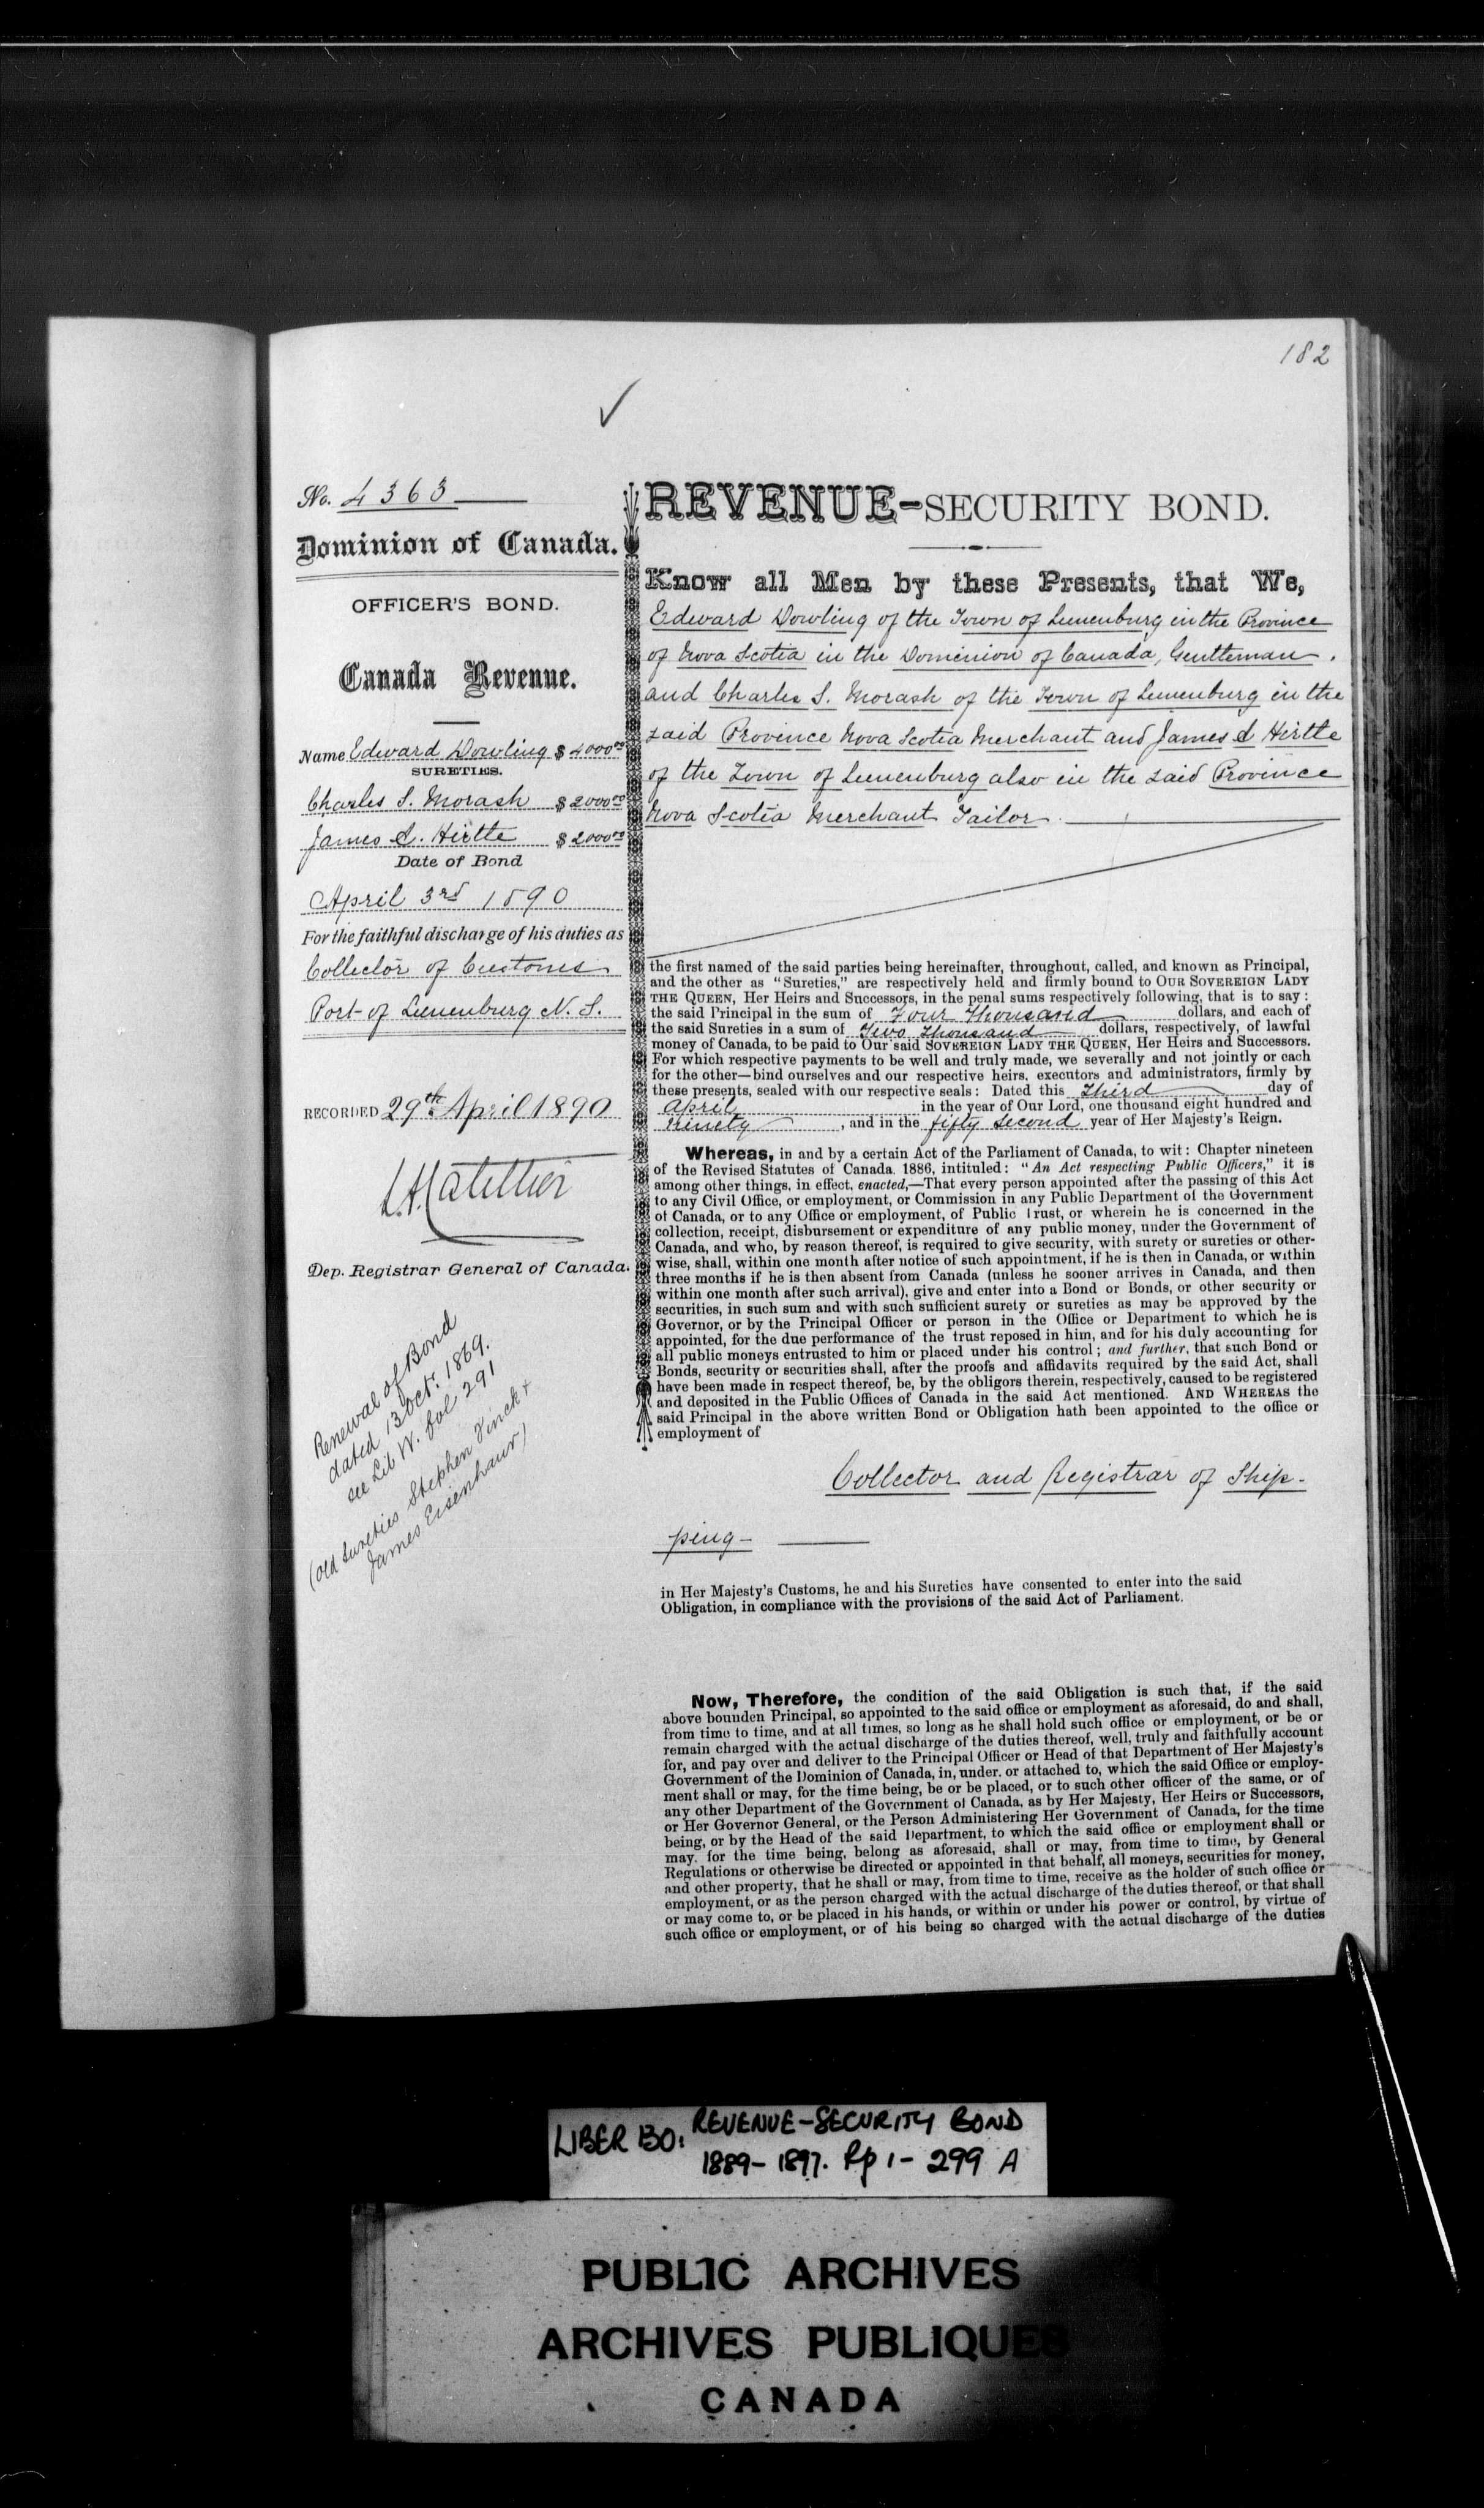 182
No. 4363
Dominion of Canada.
OFFICER'S BOND.
Canada Revenue.
Name Edward Dowling $4000 00
SURETIES.
Charles S. Morash $2000 00
James A. Hirtle $2000 00
Date of Bond
April 3rd 1890
For the faithful discharge of his duties as
Collector of Customs
Port of Lunenburg N. S.
RECORDED 29th April 1890
Dep. Registrar General of Canada.
Renewal of Bond
dated 13 Oct. 1869.
see Lib W. fol 291
(old Sureties Stephen Finck +
James Eisenhaur)
REVENUE-SECURITY BOND.
Know all Men by these Presents, that We,
Edward Dowling of the Town of Lunenburg in the Province
of Nova Scotia in the Dominion of Canada, Gentleman.
and Charles S. Morash of the Town of Lunenburg in the
said Province Nova Scotia Merchant and James A Hirtle
of the Town of Lunenburg also in the said Province
Nova Scotia Merchant Tailor.
the first named of the said parties being hereinafter, throughout, called, and known as Principal,
and the other as "Sureties," are respectively held and firmly bound to OUR SOVEREIGN LADY
THE QUEEN, Her Heirs and Successors, in the penal sums respectively following, that is to say:
the said Principal in the sum of Four Thousand dollars, and each of
the said Sureties in a sum of Two Thousand dollars, respectively, of lawful
money of Canada, to be paid to Our said SOVEREIGN LADY THE QUEEN, Her Heirs and Successors.
For which respective payments to be well and truly made, we severally and not jointly or each
for the other—bind ourselves and our respective heirs, executors and administrators, firmly by
these presents, sealed with our respective seals: Dated this Third day of
April in the year of Our Lord, one thousand eight hundred and
Ninety, and in the fifty second year of Her Majesty's Reign.
Whereas, in and by a certain Act of the Parliament of Canada, to wit: Chapter nineteen
of the Revised Statutes of Canada, 1886, intituled: "An Act respecting Public Officers," it is
among other things, in effect, enacted,—That every person appointed after the passing of this Act
to any Civil Office, or employment, or Commission in any Public Department of the Government
of Canada, or to any Office or employment, of Public Trust, or wherein he is concerned in the
collection, receipt, disbursement or expenditure of any public money, under the Government of
Canada, and who, by reason thereof, is required to give security, with surety or sureties or other-
wise, shall, within one month after notice of such appointment, if he is then in Canada, or within
three months if he is then absent from Canada (unless he sooner arrives in Canada, and then
within one month after such arrival), give and enter into a Bond or Bonds, or other security or
securities, in such sum and with such sufficient surety or sureties as may be approved by the
Governor, or by the Principal Officer or person in the Office or Department to which he is
appointed, for the due performance of the trust reposed in him, and for his duly accounting for
all public moneys entrusted to him or placed under his control; and further, that such Bond or
Bonds, security or securities shall, after the proofs and affidavits required by the said Act, shall
have been made in respect thereof, be, by the obligors therein, respectively, caused to be registered
and deposited in the Public Offices of Canada in the said Act mentioned. AND WHEREAS the
said Principal in the above written Bond or Obligation hath been appointed to the office or
employment of
Collector and Registrar of Ship-
ping-
in Her Majesty's Customs, he and his Sureties have consented to enter into the said
Obligation, in compliance with the provisions of the said Act of Parliament.
Now, Therefore, the condition of the said Obligation is such that, if the said
above bounden Principal, so appointed to the said office or employment as aforesaid, do and shall,
from time to time, and at all times, so long as he shall hold such office or employment, or be or
remain charged with the actual discharge of the duties thereof, well, truly and faithfully account
for, and pay over and deliver to the Principal Officer or Head of that Department of Her Majesty's
Government of the Dominion of Canada, in, under, or attached to, which the said Office or employ-
ment shall or may, for the time being, be or be placed, or to such other officer of the same, or of
any other Department of the Government of Canada, as by Her Majesty, Her Heirs or Successors,
or Her Governor General, or the Person Administering Her Government of Canada, for the time
being, or by the Head of the said Department, to which the said office or employment shall or
may, for the time being, belong as aforesaid, shall or may, from time to time, by General
Regulations or otherwise be directed or appointed in that behalf, all moneys, securities for money,
and other property, that he shall or may, from time to time, receive as the holder of such office or
employment, or as the person charged with the actual discharge of the duties thereof, or that shall
or may come to, or be placed in his hands, or within or under his power or control, by virtue of
such office or employment, or of his being so charged with the actual discharge of the duties
LIBER 130: REVENUE-SECURITY BOND
1889-1897. Pp 1-299 A
PUBLIC ARCHIVES
ARCHIVES PUBLIQUES
CANADA